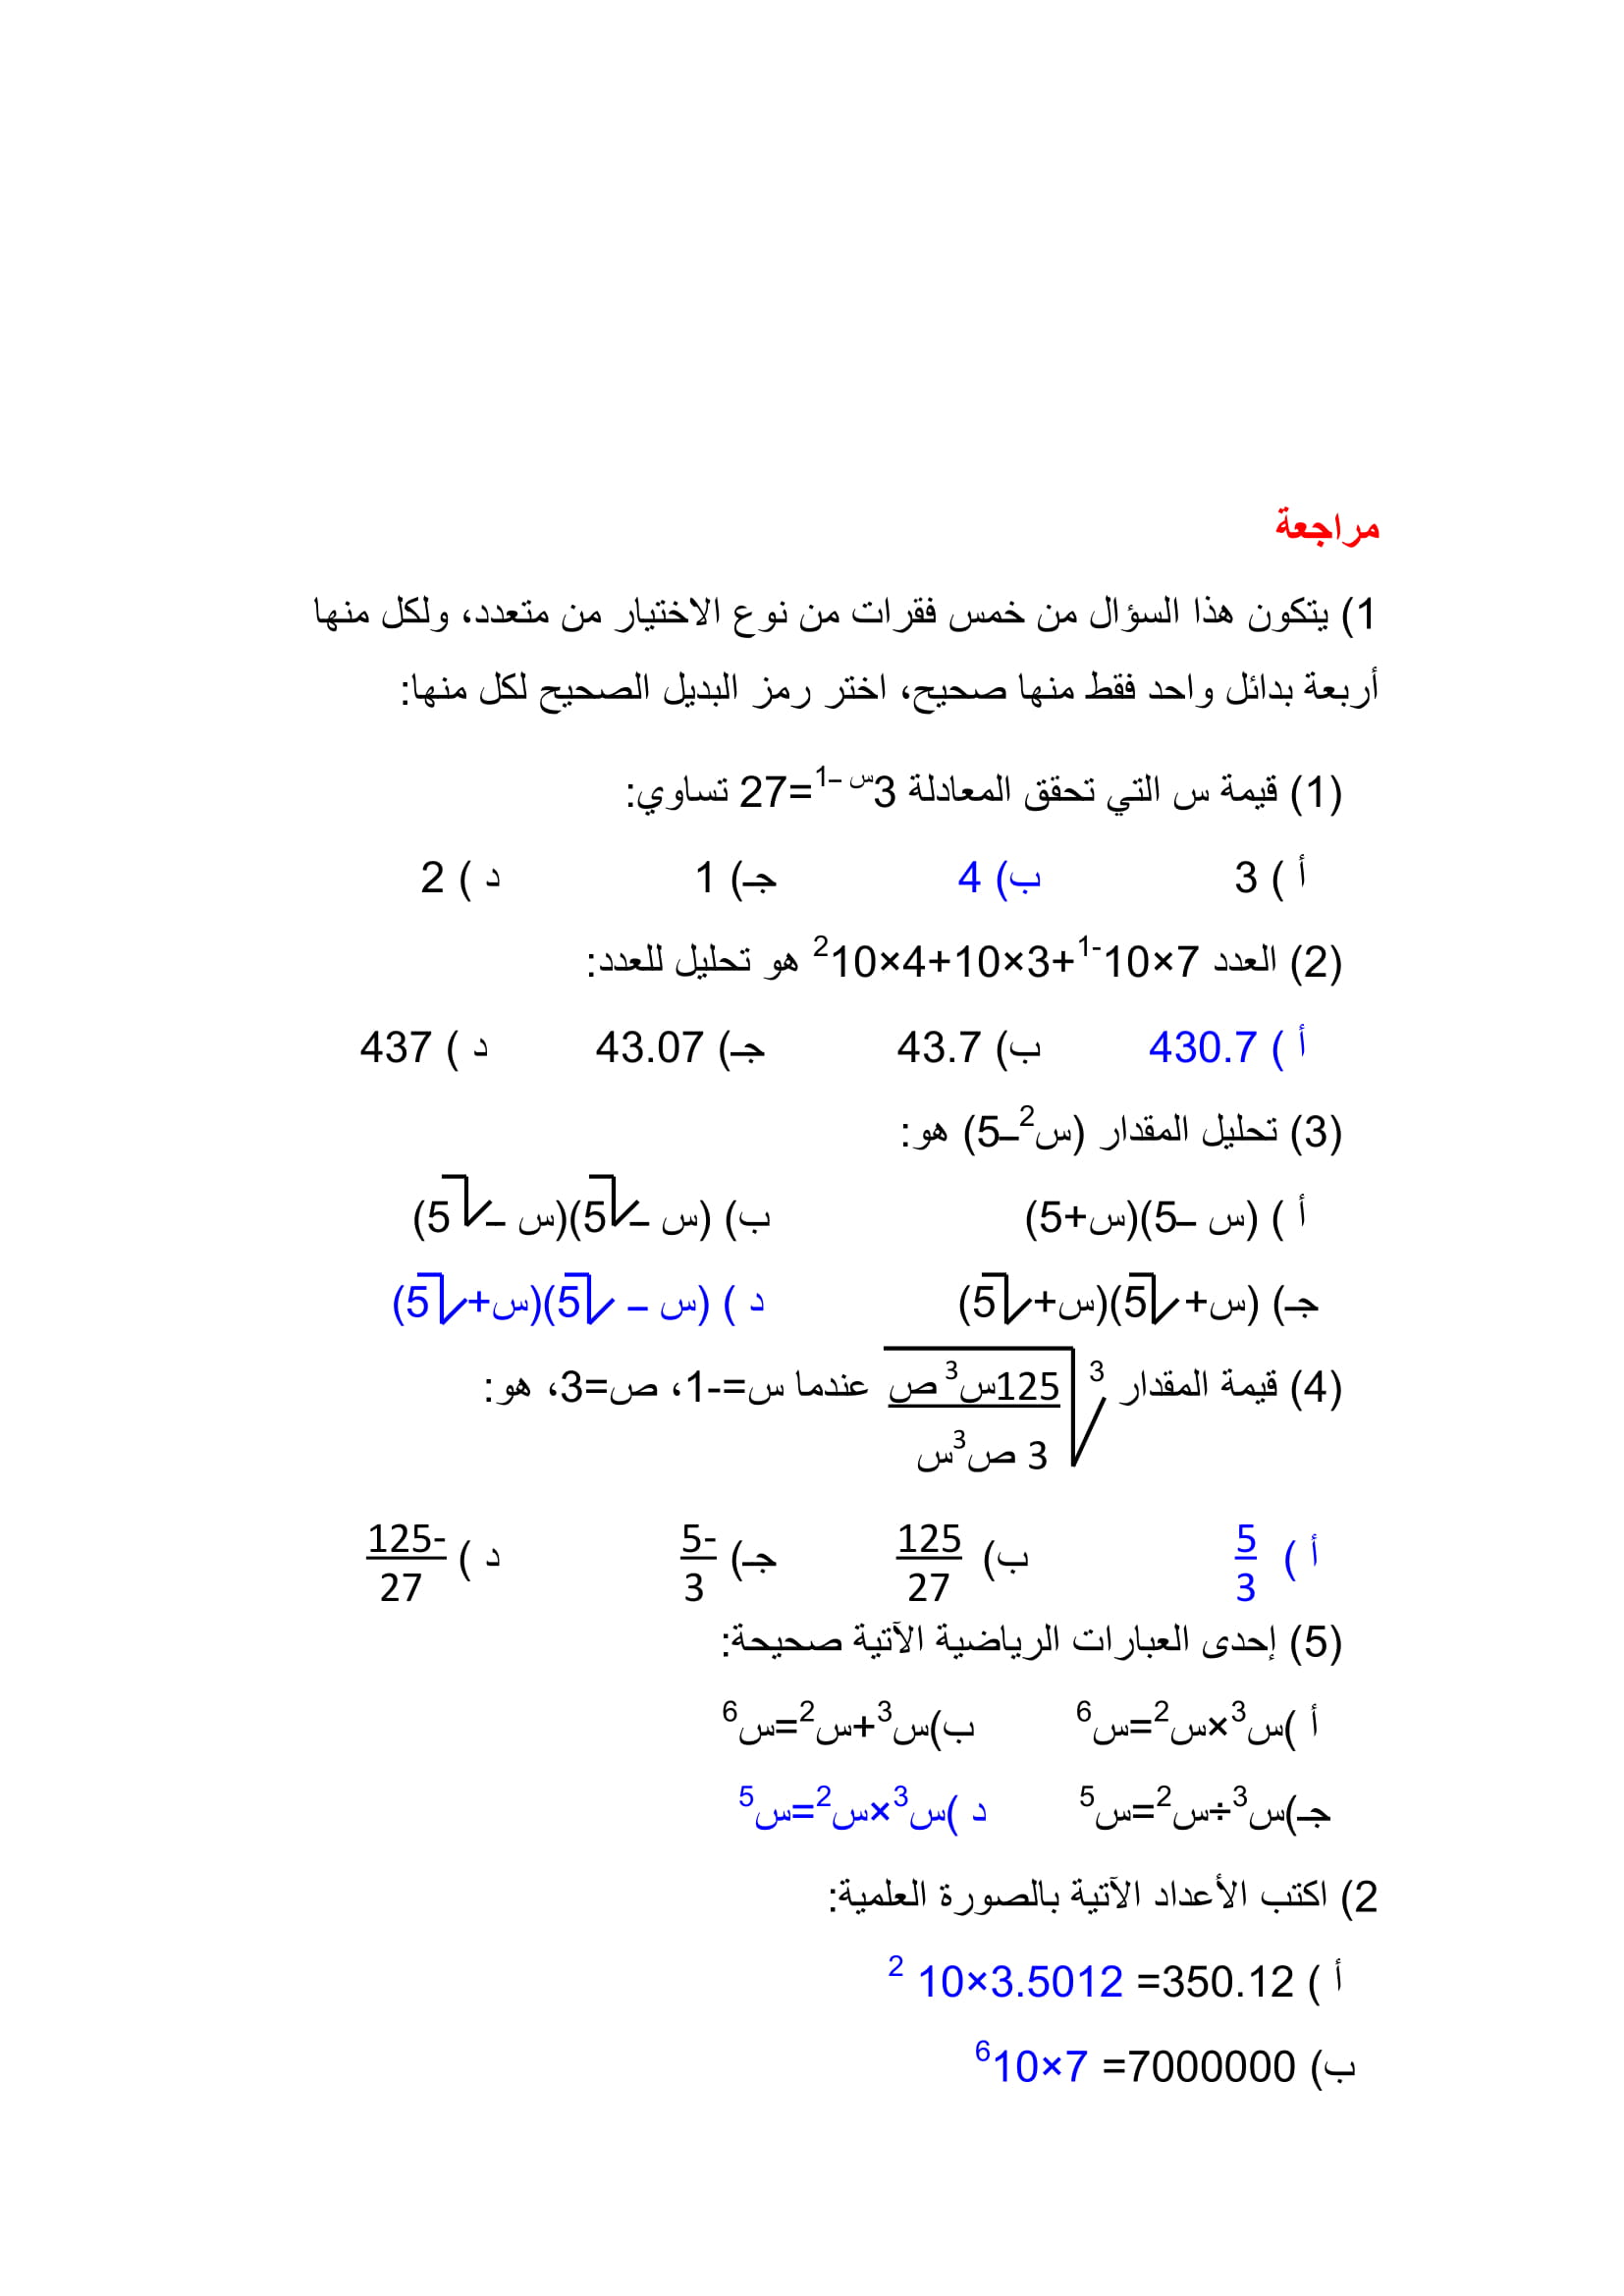 مراجعة
1) يتكون هذا السؤال من خمس فقرات من نوع الاختيار من متعدد، ولكل منها
أربعة بدائل واحد فقط منها صحيح، اختر رمز البديل الصحيح لكل منها:
(1) قيمة س التي تحقق المعادلة 3^(س –1)=27 تساوي:
أ ) 3 ب) 4 جـ) 1 د ) 2
(2) العدد 7×10^(-1)+3×10+4×10² هو تحليل للعدد:
أ ) 430.7 ب) 43.7 جـ) 43.07 د ) 437
(3) تحليل المقدار (س²–5) هو:
أ ) (س –5)(س+5) ب) (س –√5)(س –√5)
جـ) (س+√5)(س+√5) د ) (س – √5)(س+√5)
(4) قيمة المقدار ∛(125س³ ص / 3 ص³س) عندما س=-1، ص=3، هو:
أ ) 5/3 ب) 125/27 جـ) -5/3 د ) -125/27
(5) إحدى العبارات الرياضية الآتية صحيحة:
أ )س³×س²=س⁶ ب)س³+س²=س⁶
جـ)س³÷س²=س⁵ د )س³×س²=س⁵
2) اكتب الأعداد الآتية بالصورة العلمية:
أ ) 350.12= 3.5012×10 ²
ب) 7000000= 7×10⁶